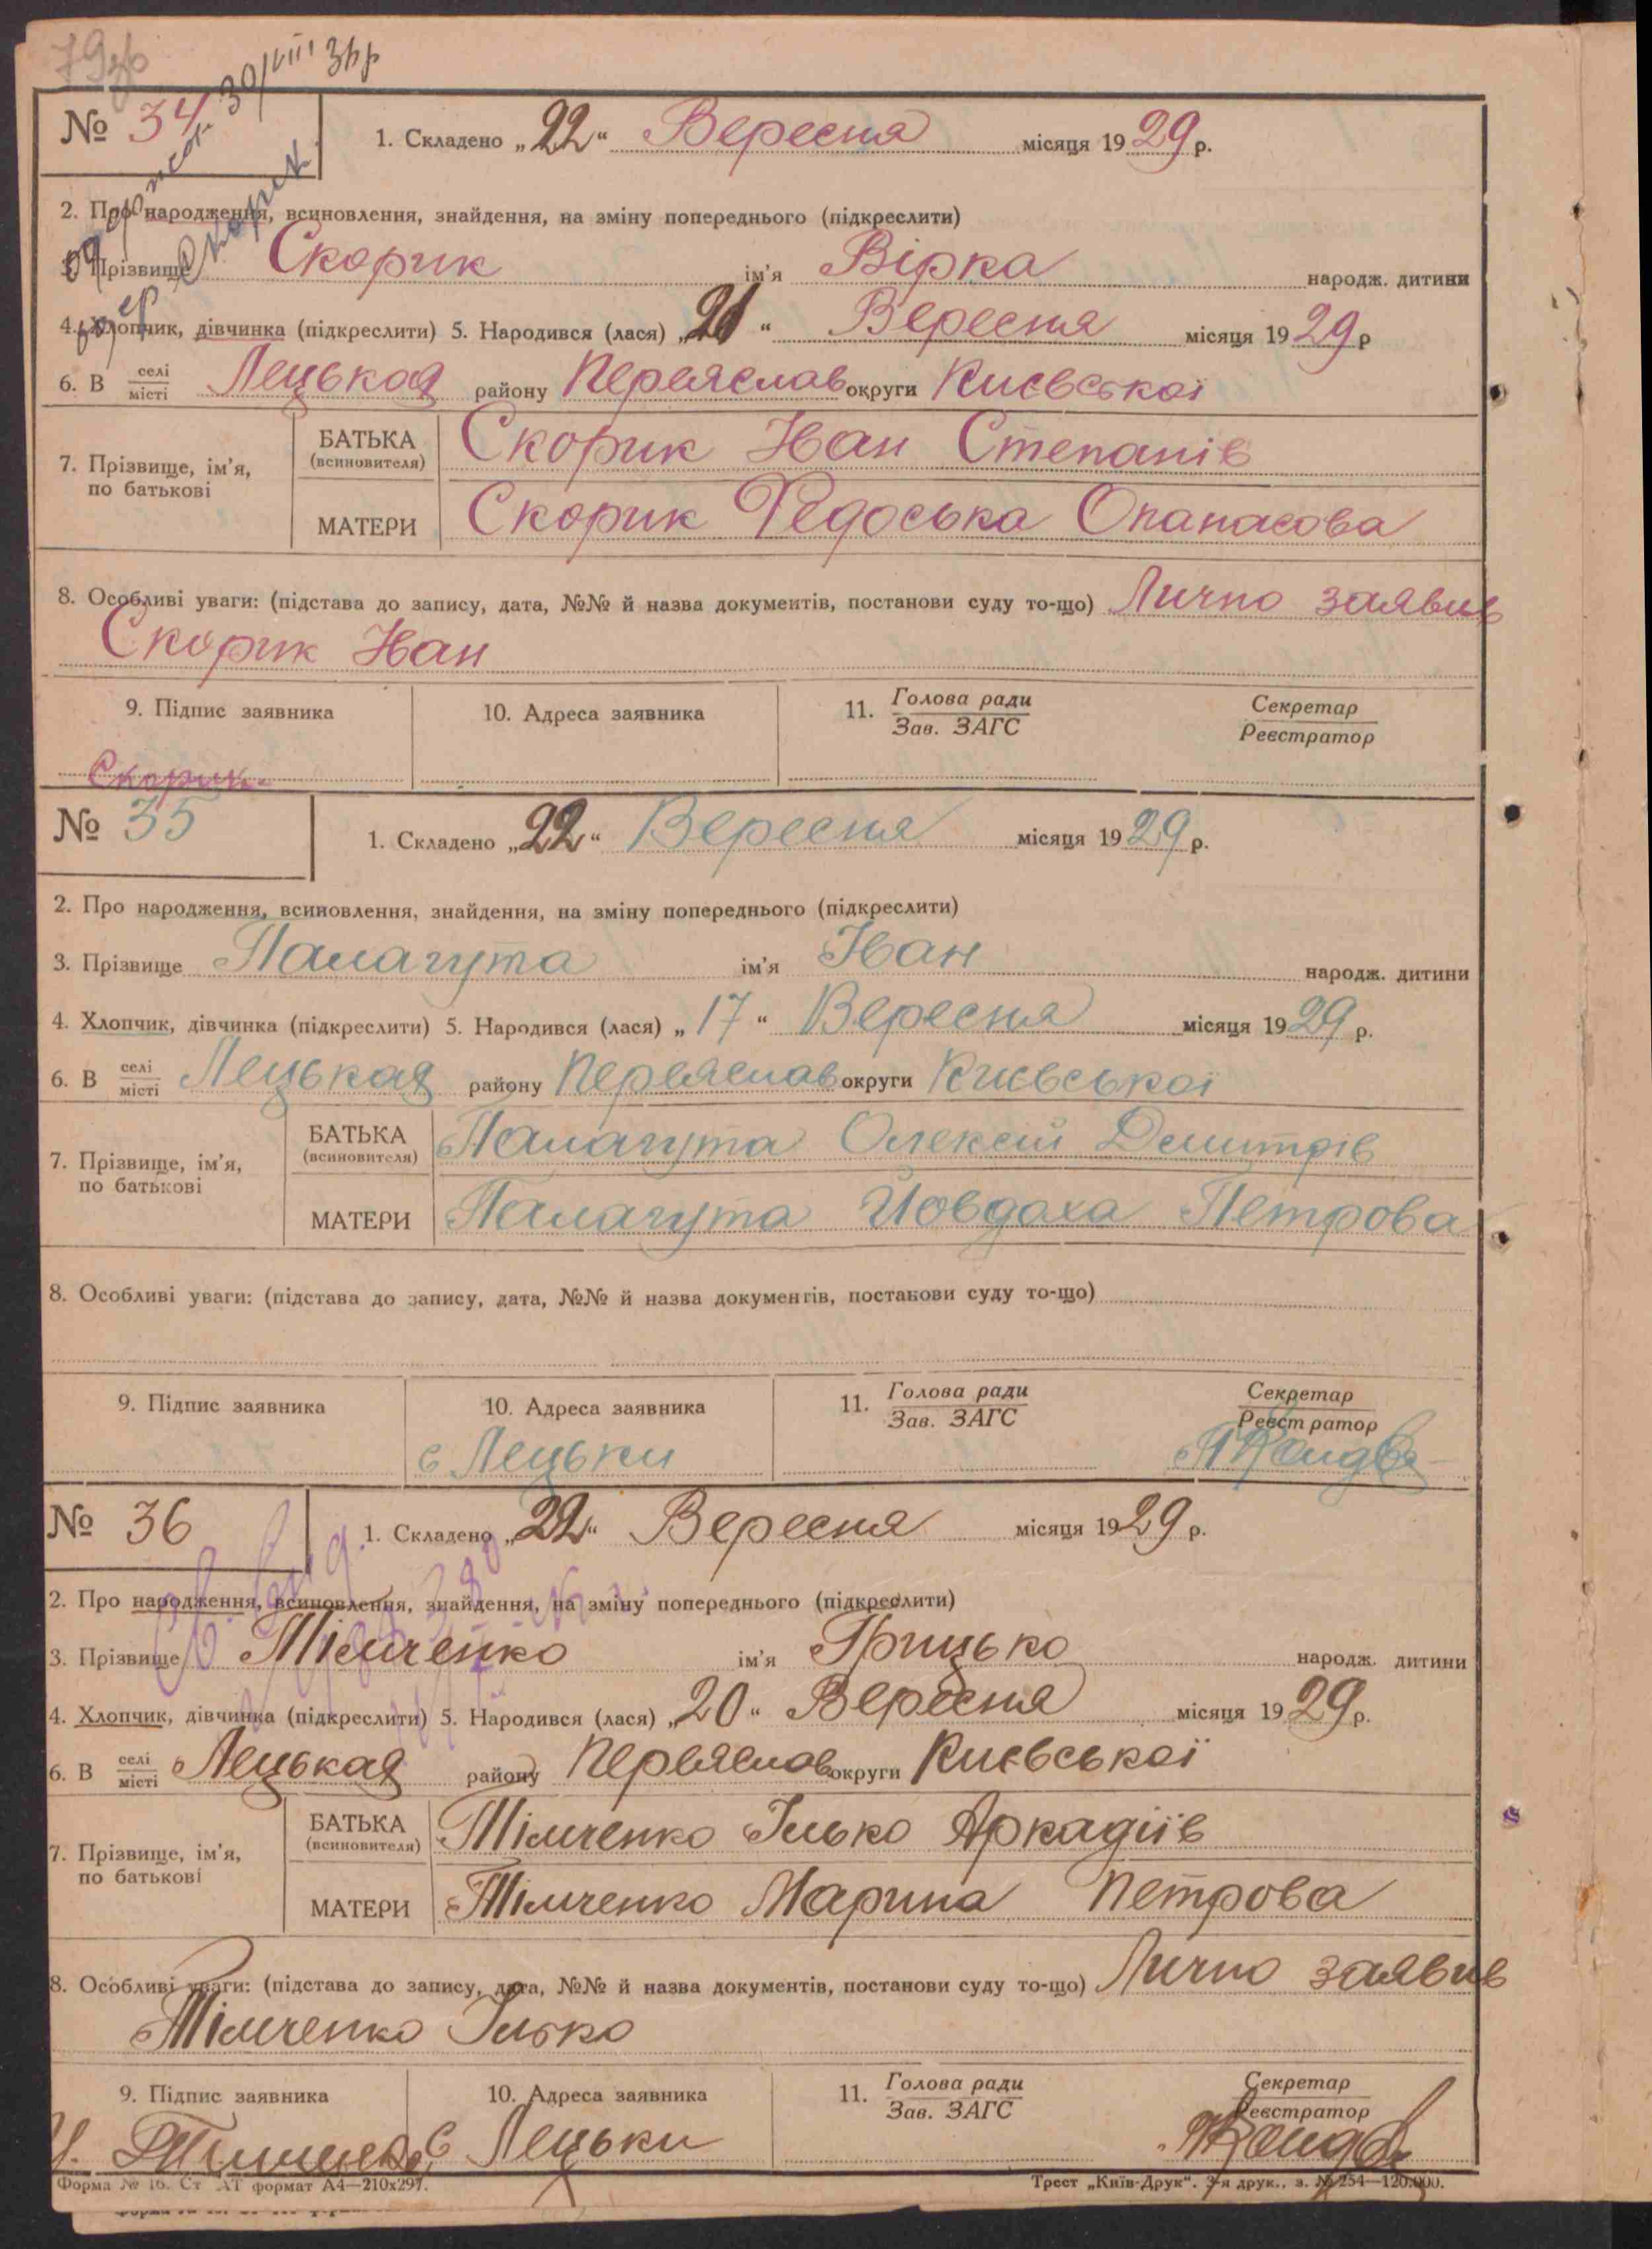 № 34
1. Складено „22“ Вересня місяця 1929 р.
2. Про народження, всиновлення, знайдення, на зміну попереднього (підкреслити)
3. Прізвище Скорик ім’я Вірка народж. дитини
4. Хлопчик, дівчинка (підкреслити) 5. Народився (лася) „21“ Вересня місяця 1929 р
6. В селі місті Лецьках району Переяслав округи Києвської
7. Прізвище, ім’я, по батькові
БАТЬКА (всиновителя) Скорик Іван Степанів
МАТЕРИ Скорик Федоська Опанасова
8. Особливі уваги: (підстава до запису, дата, №№ й назва документів, постанови суду то-що) Лично заявив
Скорик Іван
9. Підпис заявника 10. Адреса заявника 11. Голова ради Зав. ЗАГС Секретар Реєстратор
Скорик
№ 35
1. Складено „22“ Вересня місяця 1929 р.
2. Про народження, всиновлення, знайдення, на зміну попереднього (підкреслити)
3. Прізвище Палагута ім’я Іван народж. дитини
4. Хлопчик, дівчинка (підкреслити) 5. Народився (лася) „17“ Вересня місяця 1929 р.
6. В селі місті Лецьках району Переяслав округи Києвської
7. Прізвище, ім’я, по батькові
БАТЬКА (всиновителя) Палагута Олексій Дмитрів
МАТЕРИ Палагута Йовдоха Петрова
8. Особливі уваги: (підстава до запису, дата, №№ й назва документів, постанови суду то-що)
9. Підпис заявника 10. Адреса заявника 11. Голова ради Зав. ЗАГС Секретар Реєстратор
с Лецьки
№ 36
1. Складено „22“ Вересня місяця 1929 р.
2. Про народження, всиновлення, знайдення, на зміну попереднього (підкреслити)
3. Прізвище Тімченко ім’я Грицько народж. дитини
4. Хлопчик, дівчинка (підкреслити) 5. Народився (лася) „20“ Вересня місяця 1929 р.
6. В селі місті Лецьках району Переяслав округи Києвської
7. Прізвище, ім’я, по батькові
БАТЬКА (всиновителя) Тімченко Ілько Аркадіїв
МАТЕРИ Тімченко Марина Петрова
8. Особливі уваги: (підстава до запису, дата, №№ й назва документів, постанови суду то-що) Лично заявив
Тімченко Ілько
9. Підпис заявника 10. Адреса заявника 11. Голова ради Зав. ЗАГС Секретар Реєстратор
с Лецьки
Форма № 16. Ст АТ формат А4—210х297.
Трест „Київ-Друк“. 3-я друк., з. № 254—120.000.